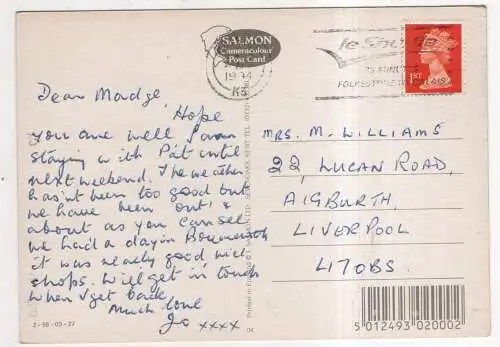 SALMON
Cameracolour
Post Card
1994
le Shuttle
35 MINUTES
1ST
Dear Madge,
Hope
you are well I am
staying with Pat until
next weekend. The weather
hasn't been too good but
we have been out &
about as you can see
we had a day in Bournemouth
it was really good nice
shops. Will get in touch
when I get back
Much love
Jo xxxx
MRS. M. WILLIAMS
22, LUCAN ROAD,
AIGBURTH,
LIVERPOOL
L17 0BS.
2-56-03-27
04
5 012493 020002